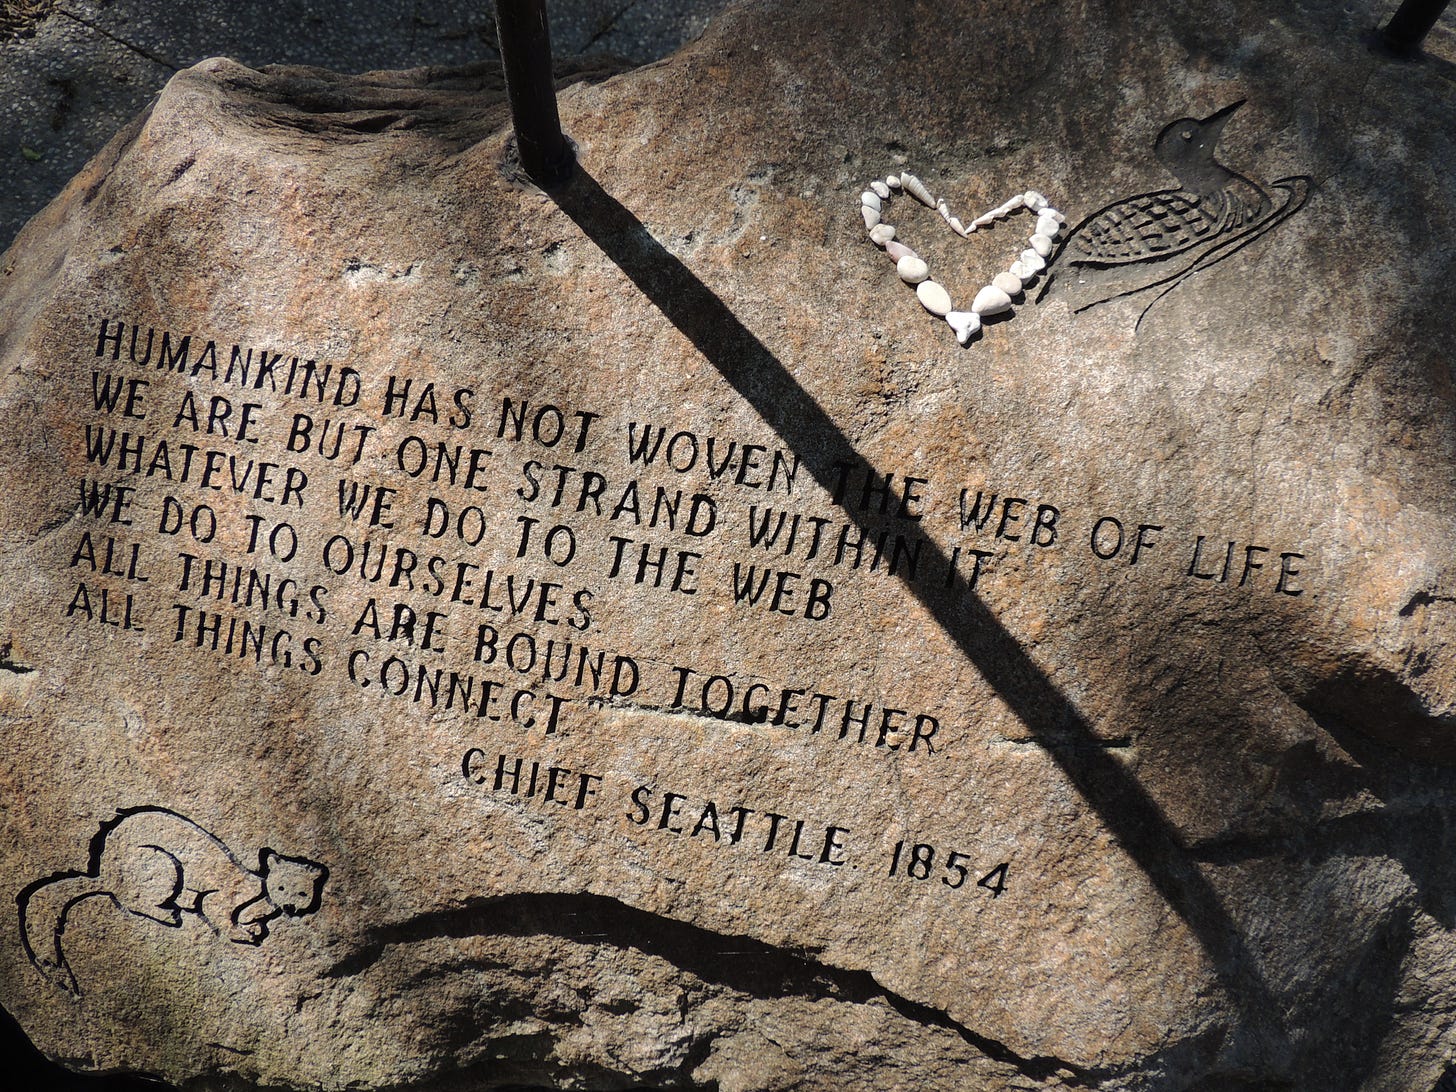 HUMANKIND HAS NOT WOVEN THE WEB OF LIFE.
WE ARE BUT ONE STRAND WITHIN IT
WHATEVER WE DO TO THE WEB
WE DO TO OURSELVES.
ALL THINGS ARE BOUND TOGETHER
ALL THINGS CONNECT
CHIEF SEATTLE. 1854